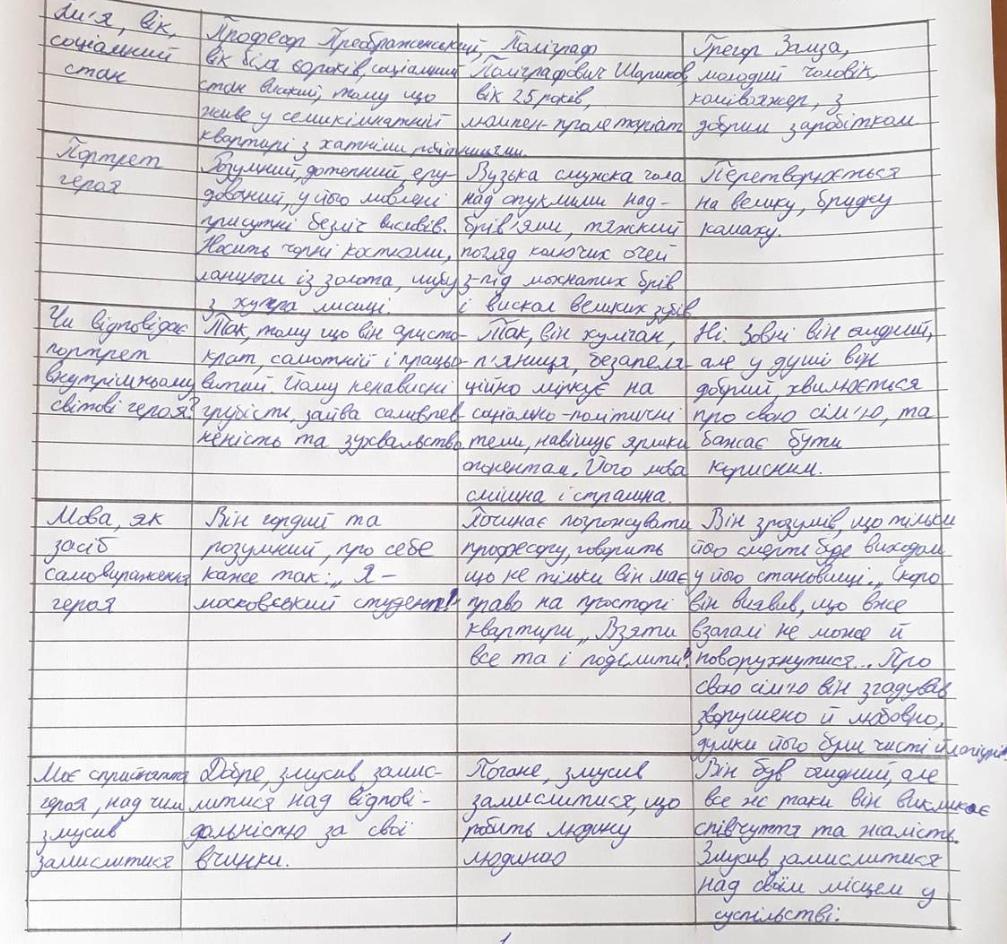 Ім'я, вік,
соціальний
стан
Професор Преображенський,
вік біля 60 років, соціальний
стан високий, тому що
живе у семикімнатній
квартирі з хатніми робітницями.
Поліграф
Поліграфович Шариков,
вік 25 років,
люмпен-пролетаріат
Грегор Замза,
молодий чоловік,
комівояжер, з
добрим заробітком
Портрет
героя
Розумний, дотепний, еру-
дований, у його мовленні
присутні безліч висловів.
Носить чорні костюми,
ланцюги із золота, шубу
з хутра лисиці.
Вузька смужка чола
над опуклими над-
брів'ями, тяжкий
погляд колючих очей
з-під мохнатих брів
і вискал великих зубів
Перетворюється
на велику, бридку
комаху.
Чи відповідає
портрет
внутрішньому
світові героя?
Так, тому що він аристо-
крат, самотній і працьо-
витий. Йому ненависні
грубість, зайва самовпев
неність та зухвальство
Так, він хуліган,
п'яниця, безапеля-
ційно міркує на
соціально-політичні
теми, навішує ярлики
опонентам. Його мова
смішна і страшна.
Ні. Зовні він огидний,
але у душі він
добрий, хвилюється
про свою сім'ю, та
бажає бути
корисним.
Мова, як
засіб
самовираження
героя
Він гордий та
розумний, про себе
каже так: „Я -
московський студент!"
Починає погрожувати
професору, говорить
що не тільки він має
право на просторі
квартири „Взяти
все та і поділити"!
Він зрозумів, що тільки
його смерть буде виходом
у його становищі. „Скоро
він виявив, що вже
взагалі не може й
поворухнутися... Про
свою сім'ю він згадував
зворушено й любовно,
думки його були чисті й
Моє сприйняття
героя, над чим
змусив
замислитися
Добре, змусив замис-
литися над відпові-
дальністю за свої
вчинки.
Погане, змусив
замислитися, що
робить людину
людиною
Він був огидний, але
все ж таки він викликає
співчуття та жалість.
Змусив замислитися
над своїм місцем у
суспільстві.